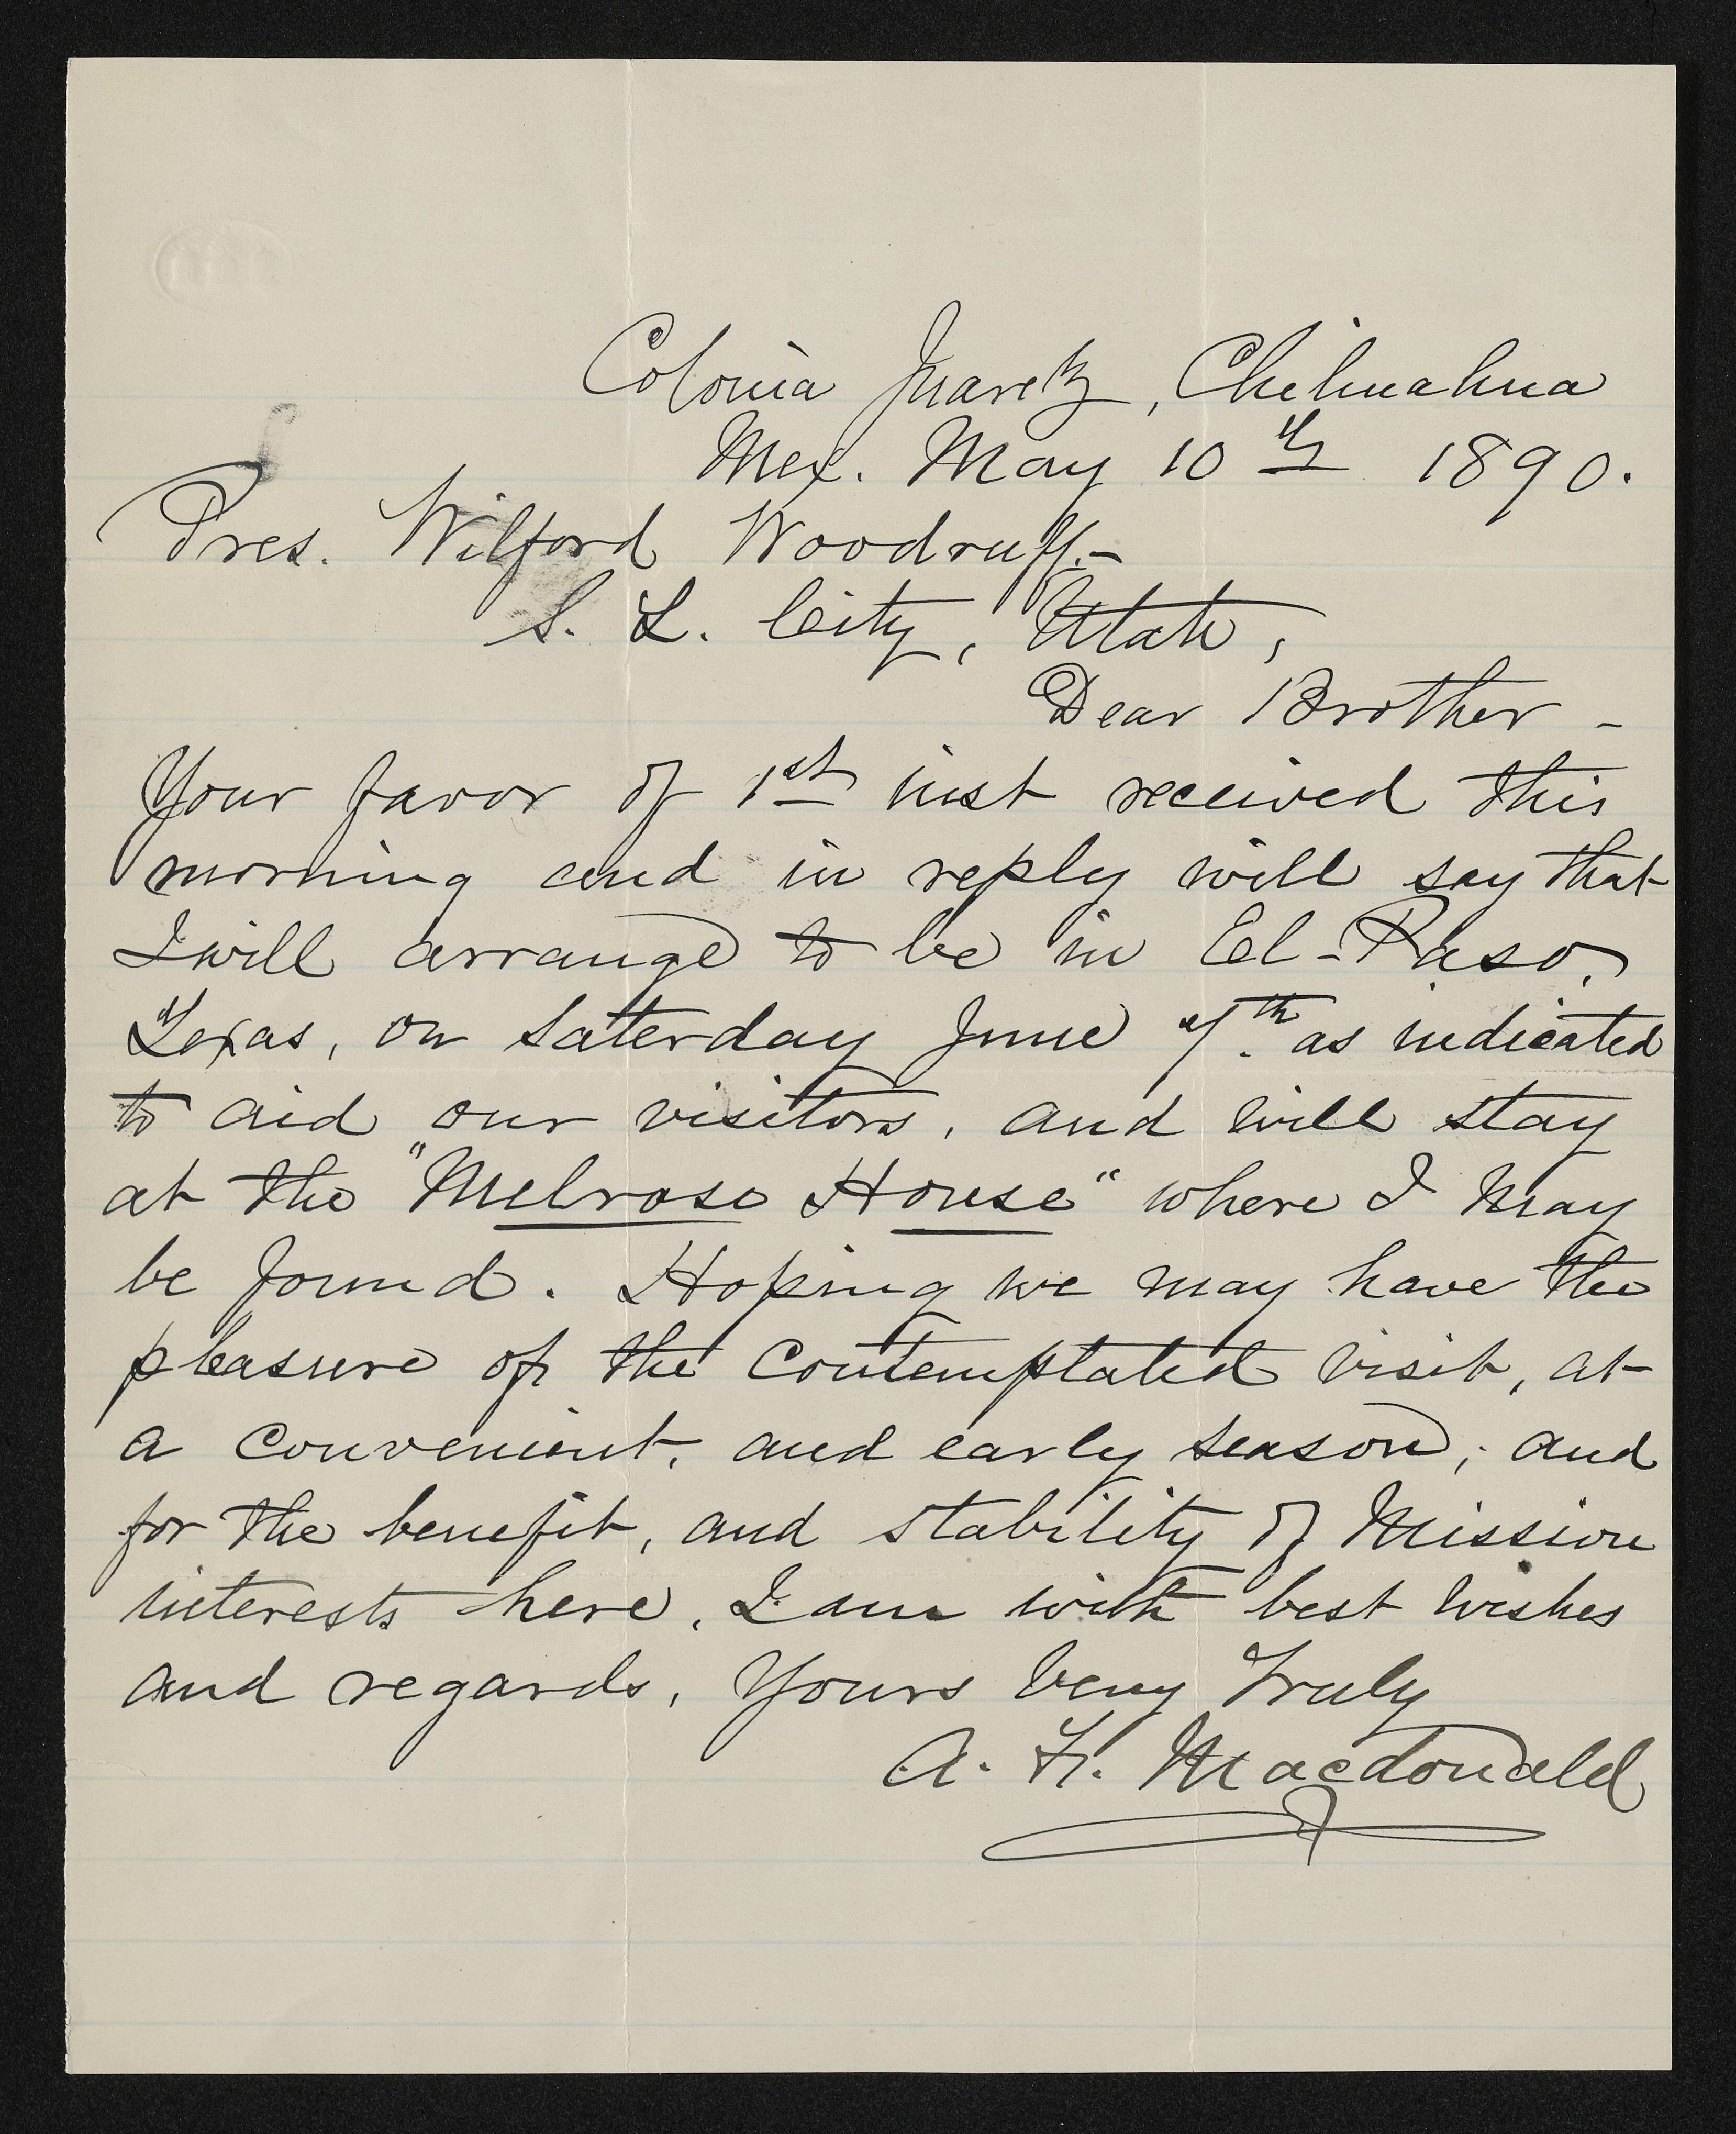 Colonia Juarez, Chihuahua
Mex. May 10th 1890.
Pres. Wilford Woodruff.-
S. L. City, Utah,
Dear Brother -
Your favor of 1st inst received this
morning and in reply will say that
I will arrange to be in El-Paso,
Texas, on Saterday June 7th. as indicated
to aid our visitors, and will stay
at the "Melrose House" where I may
be found. Hoping we may have the
pleasure of the contemplated visit, at
a convenient, and early season; and
for the benefit, and stability of Mission
interests here, I am with best wishes
and regards, Yours Very Truly
A. F. Macdonald